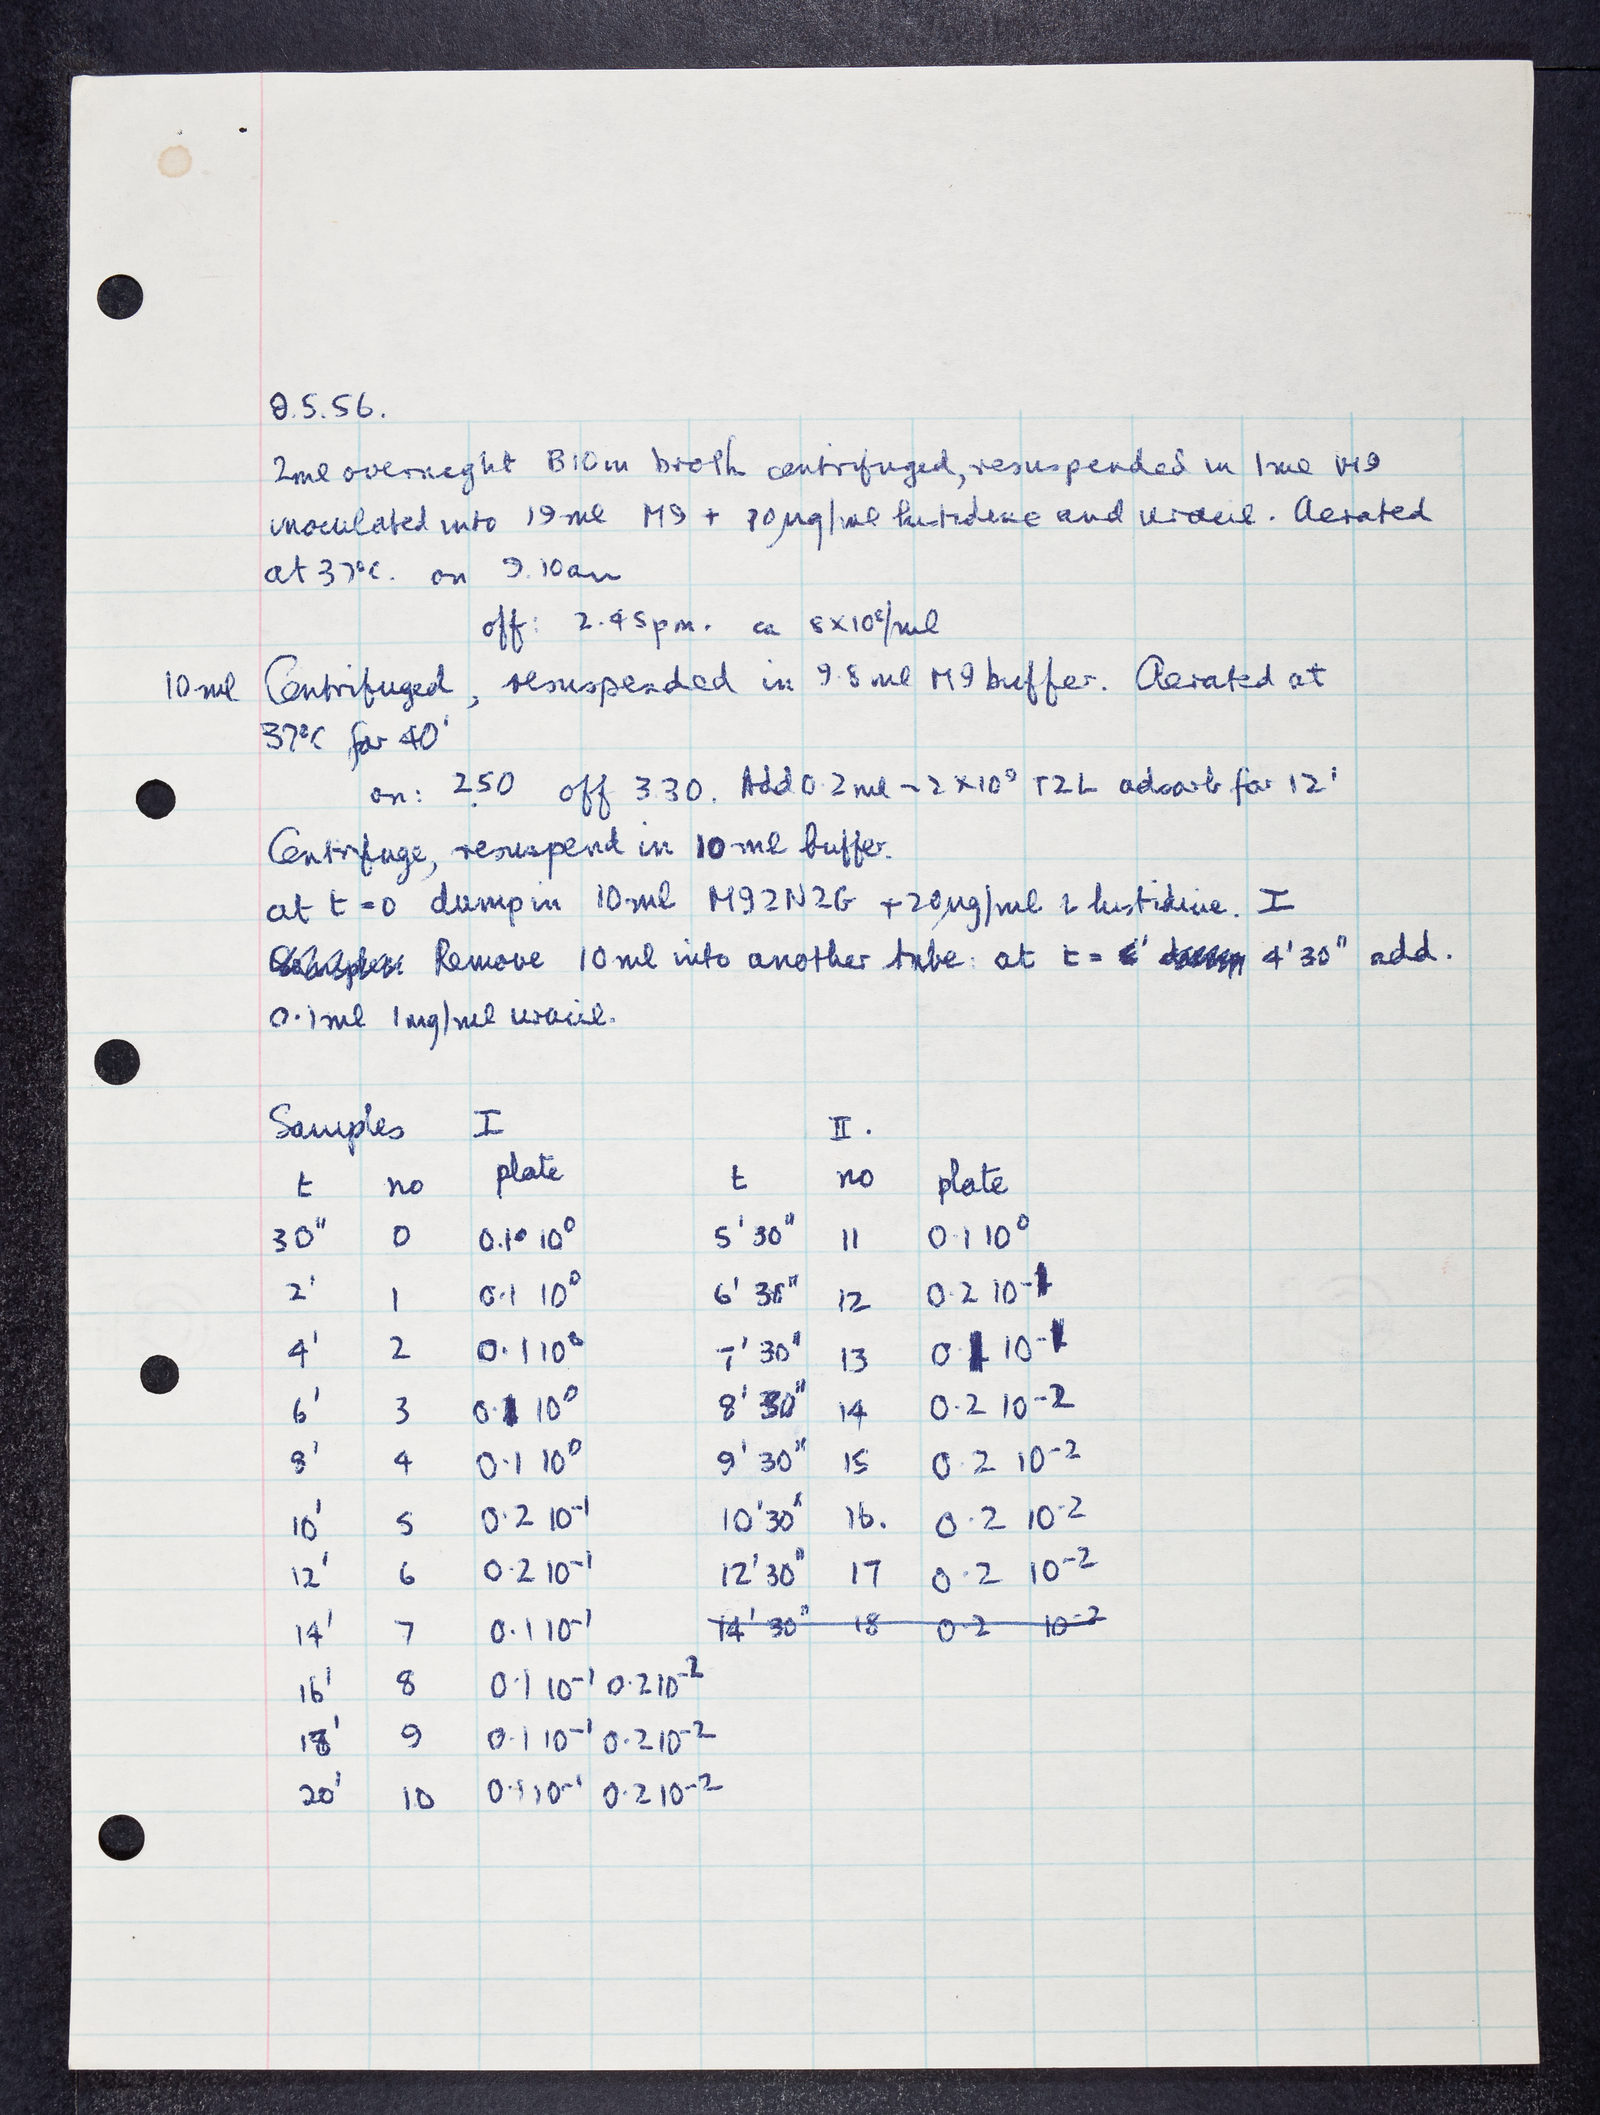 8.5.56.
2ml overnight B10m broth centrifuged, resuspended in 1ml M9
inoculated into 19ml M9 + 20µg/ml histidine and uracil. Aerated
at 37°C. on 9.10am
off: 2.45pm. ca 8x10⁸/ml
10ml Centrifuged, resuspended in 9.8ml M9 buffer. Aerated at
37°C for 40'
on: 2.50 off 3.30. Add 0.2ml ~2x10⁹ T2L adsorb for 12'
Centrifuge, resuspend in 10ml buffer.
at t=0 dump in 10ml M92N2G +20µg/ml L histidine. I
Remove 10ml into another tube: at t= 4'30" add.
0.1ml 1mg/ml uracil.
Samples I II.
t no plate t no plate
30" 0 0.1 10⁰ 5'30" 11 0.1 10⁰
2' 1 0.1 10⁰ 6'30" 12 0.2 10⁻¹
4' 2 0.1 10⁰ 7'30" 13 0.1 10⁻¹
6' 3 0.1 10⁰ 8'30" 14 0.2 10⁻²
8' 4 0.1 10⁰ 9'30" 15 0.2 10⁻²
10' 5 0.2 10⁻¹ 10'30" 16. 0.2 10⁻²
12' 6 0.2 10⁻¹ 12'30" 17 0.2 10⁻²
14' 7 0.1 10⁻¹ 14'30" 18 0.2 10⁻²
16' 8 0.1 10⁻¹ 0.2 10⁻²
18' 9 0.1 10⁻¹ 0.2 10⁻²
20' 10 0.1 10⁻¹ 0.2 10⁻²